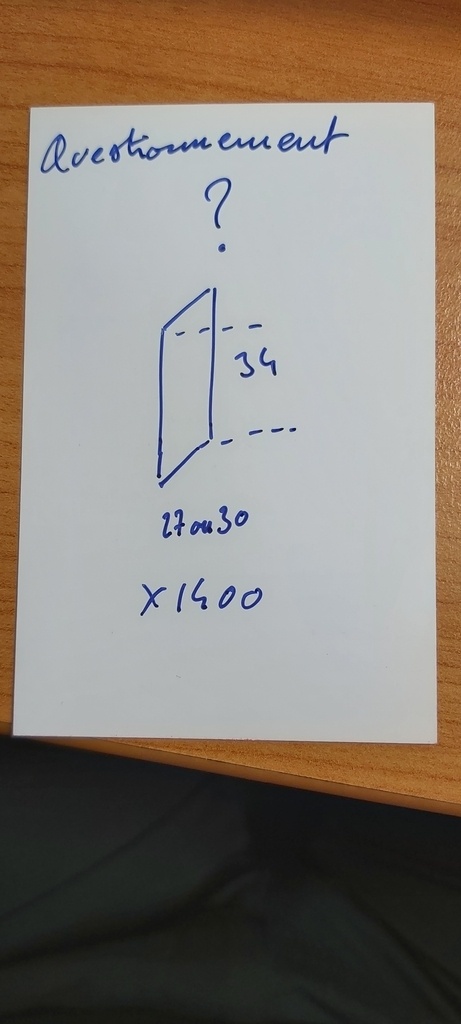 Questionnement
?
34
27 ou 30
X 1400